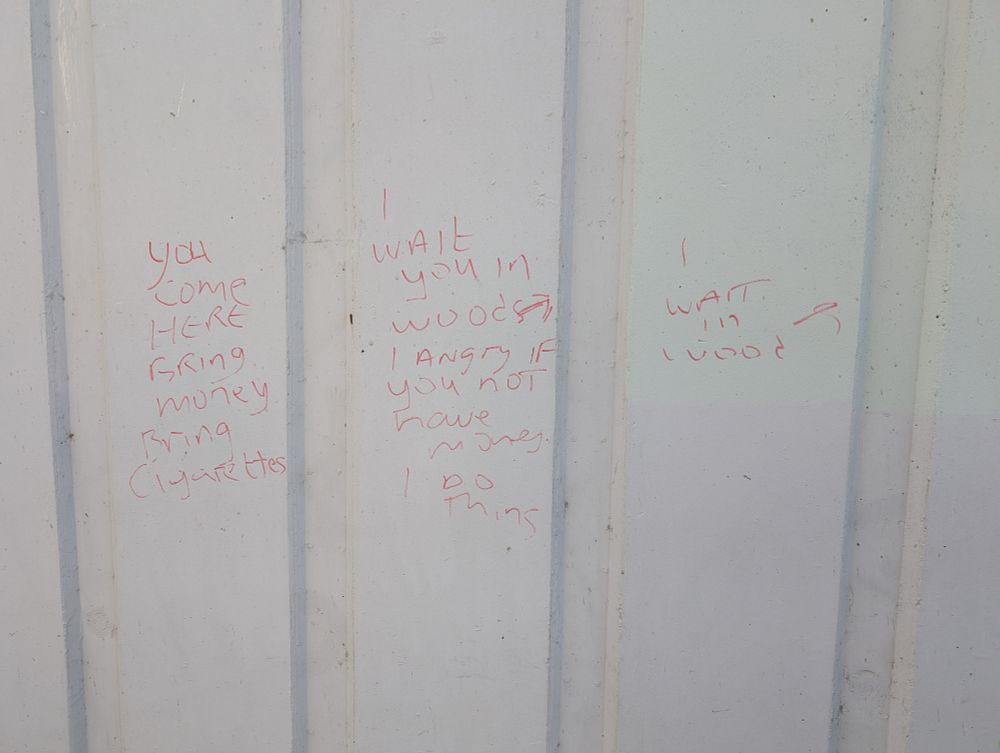 you
come
HERE
BRing
money
Bring
Cigarettes
I
WAIt
you in
woods
I ANgRy IF
you noT
have
money
I DO
Thing
I
WAIT
in
wood